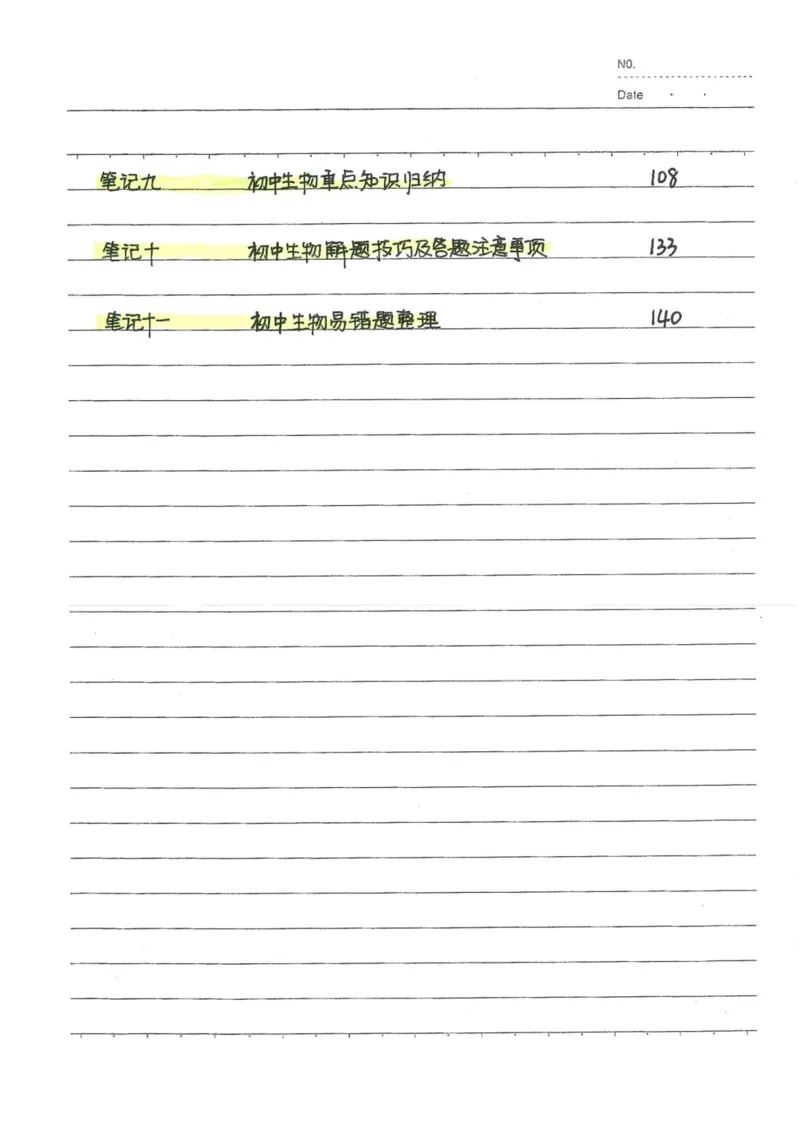 NO.
Date
笔记九 初中生物重点知识归纳 108
笔记十 初中生物解题技巧及答题注意事项 133
笔记十一 初中生物易错题整理 140